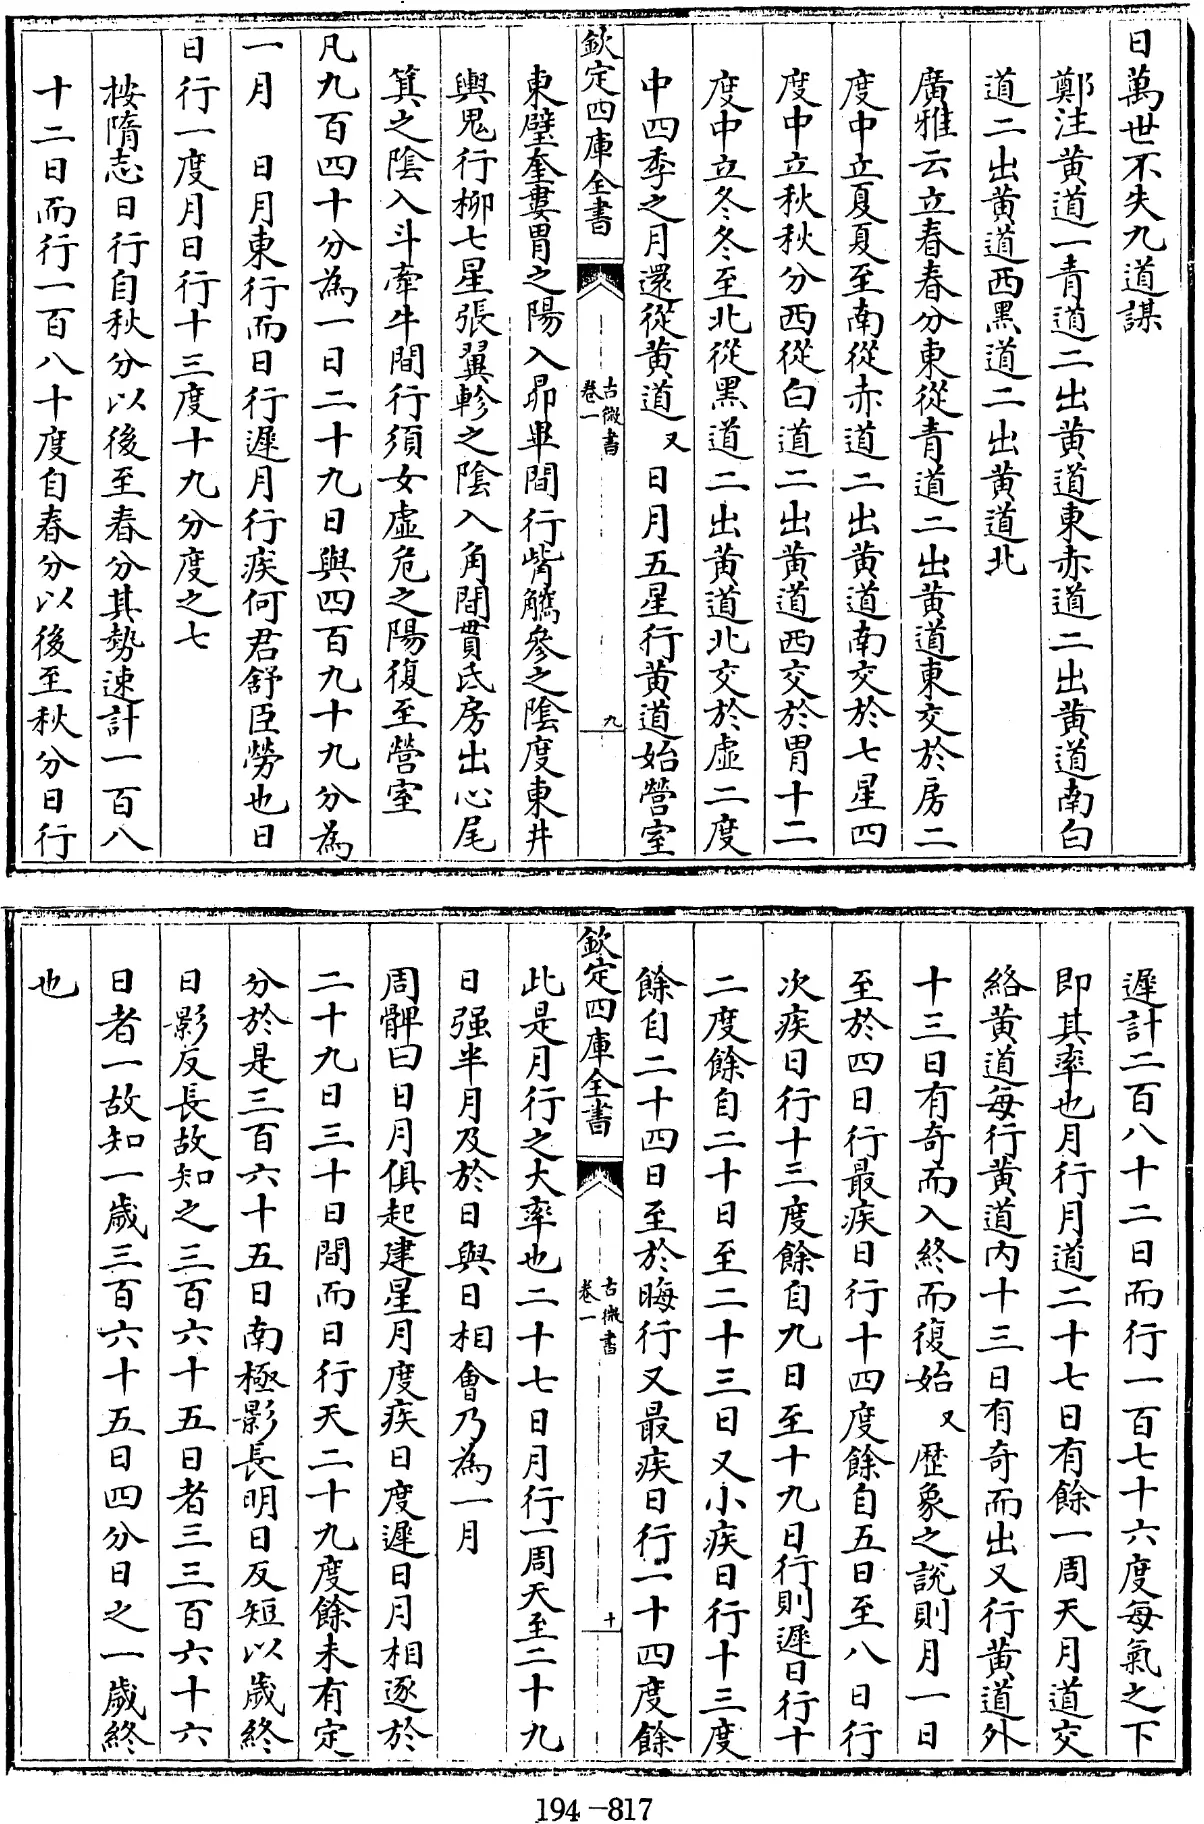 日萬世不失九道謀
鄭注黄道一青道二出黄道東赤道二出黄道南白
道二出黄道西黑道二出黄道北
廣雅云立春春分東從青道二出黄道東交於房二
度中立夏夏至南從赤道二出黄道南交於七星四
度中立秋秋分西從白道二出黄道西交於胃十二
度中立冬冬至北從黑道二出黄道北交於虚二度
中四季之月還從黄道 又 日月五星行黄道始營室
欽定四庫全書
古微書
卷一
九
東壁奎婁胃之陽入昴畢間行觜觿參之陰度東井
輿鬼行柳七星張翼軫之陰入角間貫氐房出心尾
箕之陰入斗牽牛間行須女虚危之陽復至營室
凡九百四十分為一日二十九日與四百九十九分為
一月 日月東行而日行遲月行疾何君舒臣勞也日
日行一度月日行十三度十九分度之七
按隋志日行自秋分以後至春分其勢速計一百八
十二日而行一百八十度自春分以後至秋分日行
遲計二百八十二日而行一百七十六度每氣之下
即其率也月行月道二十七日有餘一周天月道交
絡黄道每行黄道内十三日有奇而出又行黄道外
十三日有奇而入終而復始 又 歴象之説則月一日
至於四日行最疾日行十四度餘自五日至八日行
次疾日行十三度餘自九日至十九日行則遲日行十
二度餘自二十日至二十三日又小疾日行十三度
餘自二十四日至於晦行又最疾日行一十四度餘
欽定四庫全書
古微書
卷一
十
此是月行之大率也二十七日月行一周天至二十九
日强半月及於日與日相會乃為一月
周髀曰日月俱起建星月度疾日度遲日月相逐於
二十九日三十日間而日行天二十九度餘未有定
分於是三百六十五日南極影長明日反短以歲終
日影反長故知之三百六十五日者三三百六十六
日者一故知一歲三百六十五日四分日之一歲終
也
194-817